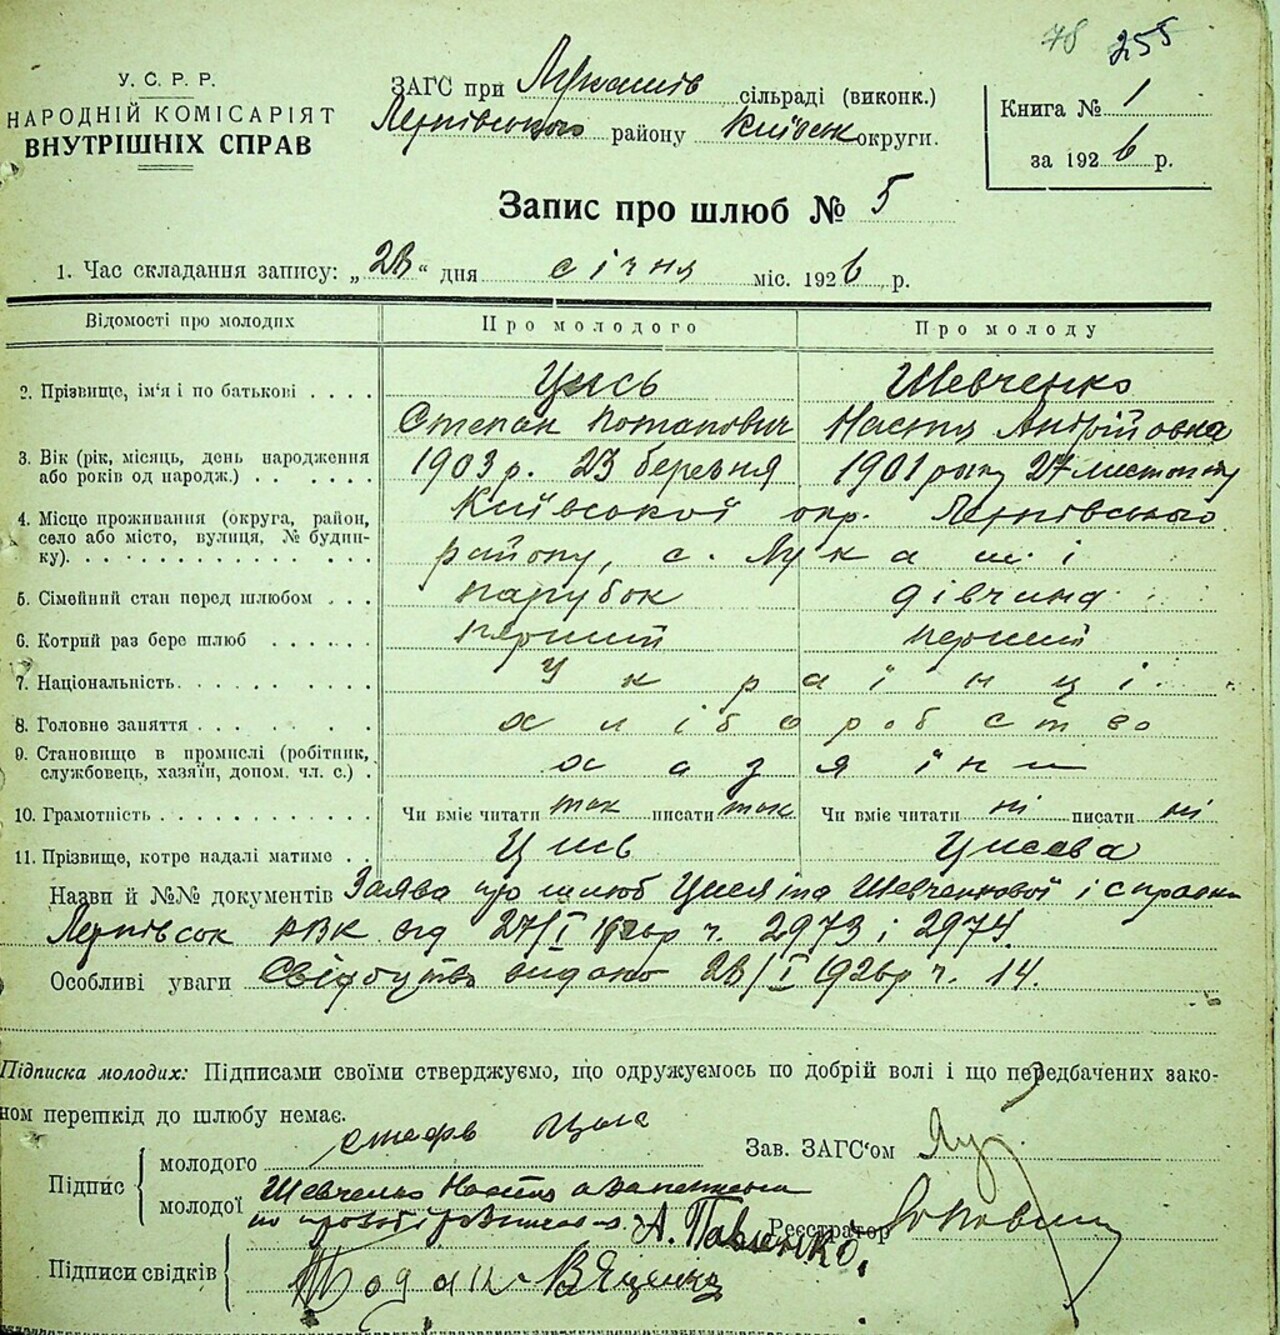 78 255
У. С. Р. Р.
НАРОДНІЙ КОМІСАРІЯТ
ВНУТРІШНІХ СПРАВ
ЗАГС при Лукашів сільраді (виконк.)
району Київськ округи.
Книга № 1
за 1926 р.
Запис про шлюб № 5
1. Час складання запису: „28“ дня січня міс. 1926 р.
Відомості про молодих Про молодого Про молоду
2. Прізвище, ім'я і по батькові . . . . Цись Шевченко
Степан Потапович Настя Андрійовна
3. Вік (рік, місяць, день народження або років од народж.) . . . . . . 1903 р. 23 березня 1901 року 27 листопаду
4. Місце проживання (округа, район, село або місто, вулиця, № будинку). . . . . . . . . . . . Київської окр.
району, с. Лукаші
5. Сімейний стан перед шлюбом . . . парубок дівчина
6. Котрий раз бере шлюб . . . . . . перший перший
7. Національність. . . . . . . . . . Українці
8. Головне заняття . . . . . . . . хліборобство
9. Становище в промислі (робітник, службовець, хазяїн, допом. чл. с.) . хазяїни
10. Грамотність . . . . . . . . . . . Чи вміє читати так писати так Чи вміє читати ні писати ні
11. Прізвище, котре надалі матиме . . Цись Цисева
Назви й №№ документів Заява про шлюб Цися та Шевченкової і справки
РВК від 27/I 1926р ч. 2973 і 2974.
Особливі уваги Свідоцтво видано 28/I 1926р ч. 14.
Підписка молодих: Підписами своїми стверджуємо, що одружуємось по добрій волі і що передбачених зако-
ном перешкід до шлюбу немає.
Підпис молодого
Зав. ЗАГС'ом
молодої Шевченко Настя а
А. Павленко
Реєстратор
Підписи свідків В Яценко